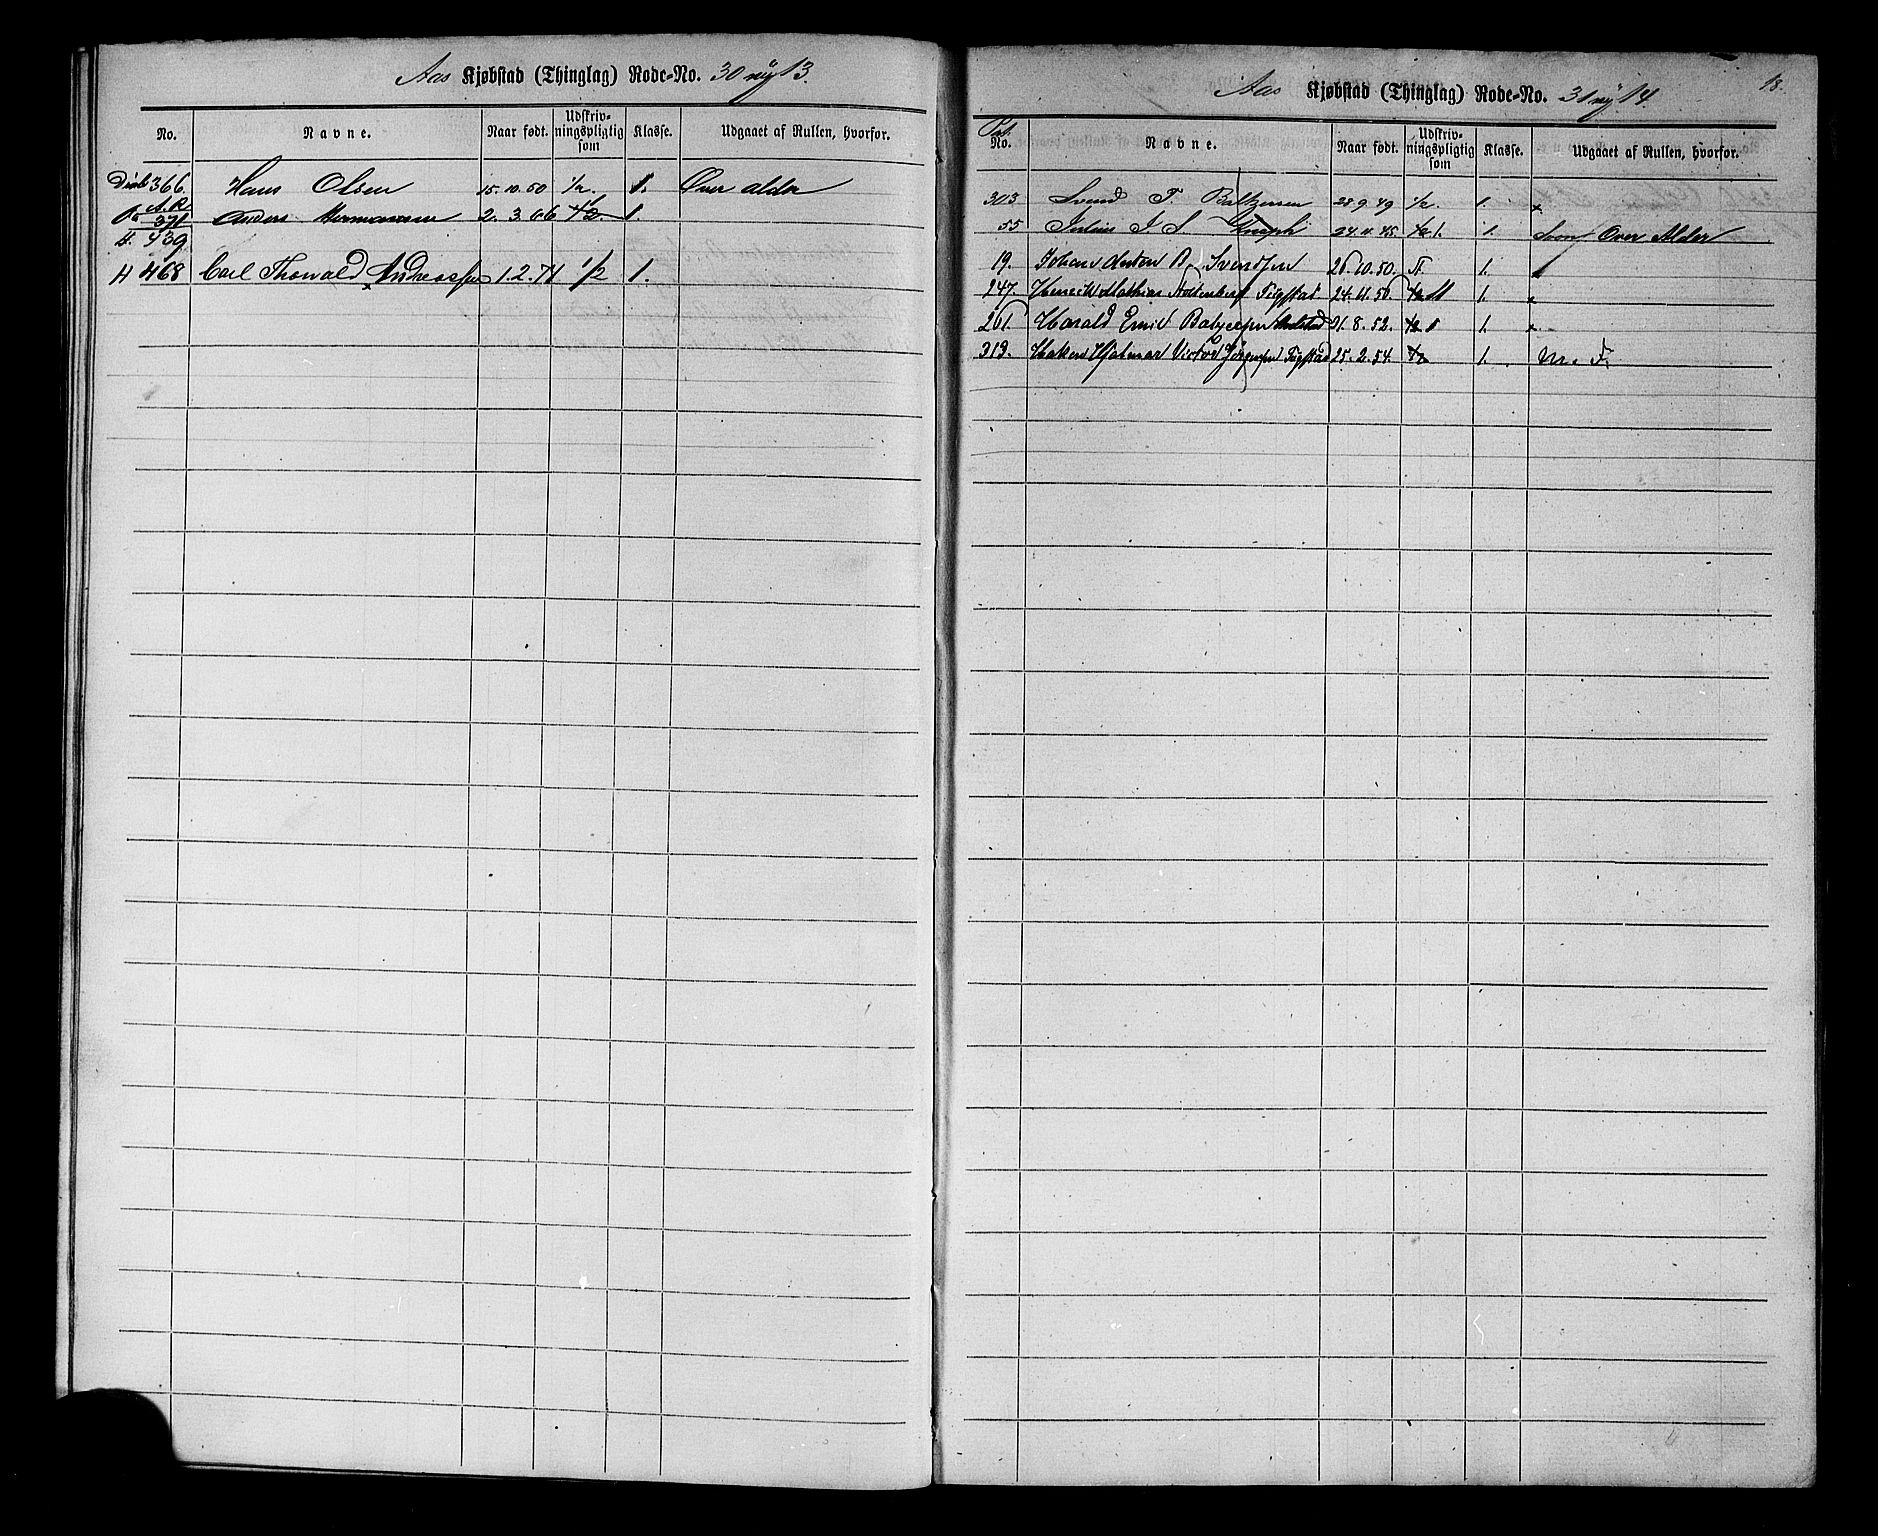 Aas Kjøbstad (Thinglag) Rode-No. 30 ny 13.
No. Navne. Naar født. Udskriv-ningspligtig som Klasse. Udgaaet af Rullen, hvorfor.
366. Hans Olsen 15.10.50 1/2. 1. Over alder
A.R. 371 Anders Hermansen 2.3.66 1/2 1
439
H 468 Carl Thorvald Andreassen 1.2.71 1/2 1.
18.
Aas Kjøbstad (Thinglag) Rode-No. 31 ny 14
Pat. No. Navne. Naar født. Udskriv-ningspligtig som Klasse. Udgaaet af Rullen, hvorfor.
303 Svend T. Baltzersen 28.9.49 1/2. 1.
55 Julius J. S. 24.11.45. 1/2 1. 1. Soon Over Alder
19. Johan Anton B. Svendsen 26.10.50. 1.
247. Henrik Mathias Stoltenberg Figstad 24.11.50. 1/2 1.
261. Harald Emil 31.8.52. 1/2 1.
313. Haken Hjalmar Victor Jørgensen Figstad 25.2.54. 1/2 1. M. F.